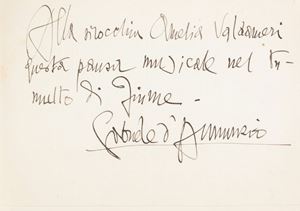 Alla crocerina Amelia Valdameri
questa pausa musicale nel tu-
multo di Fiume -
Gabriele d'Annunzio